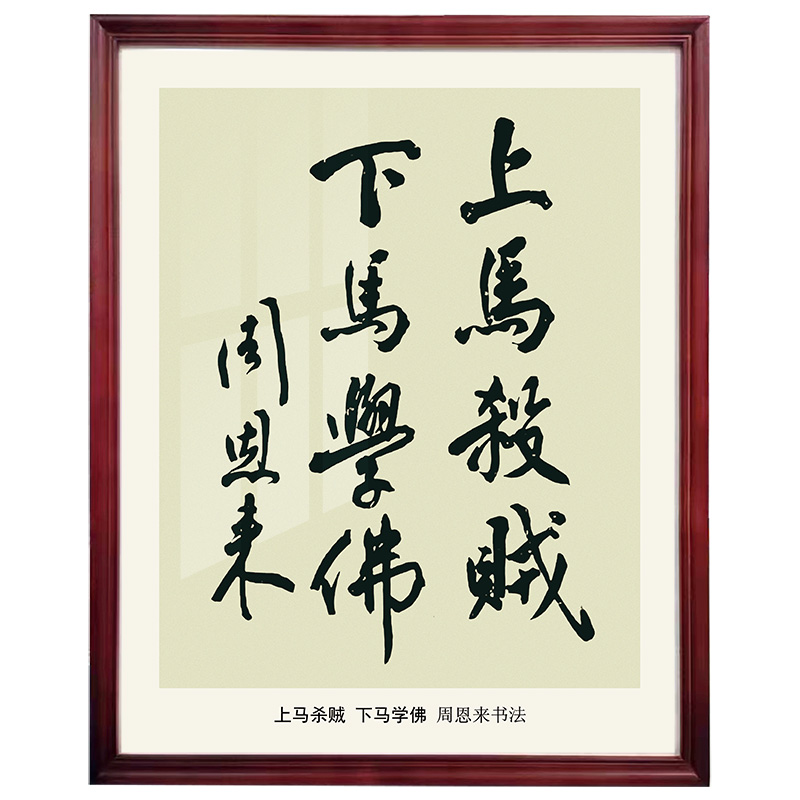 上馬殺賊
下馬學佛
周恩来
上马杀贼 下马学佛 周恩来书法